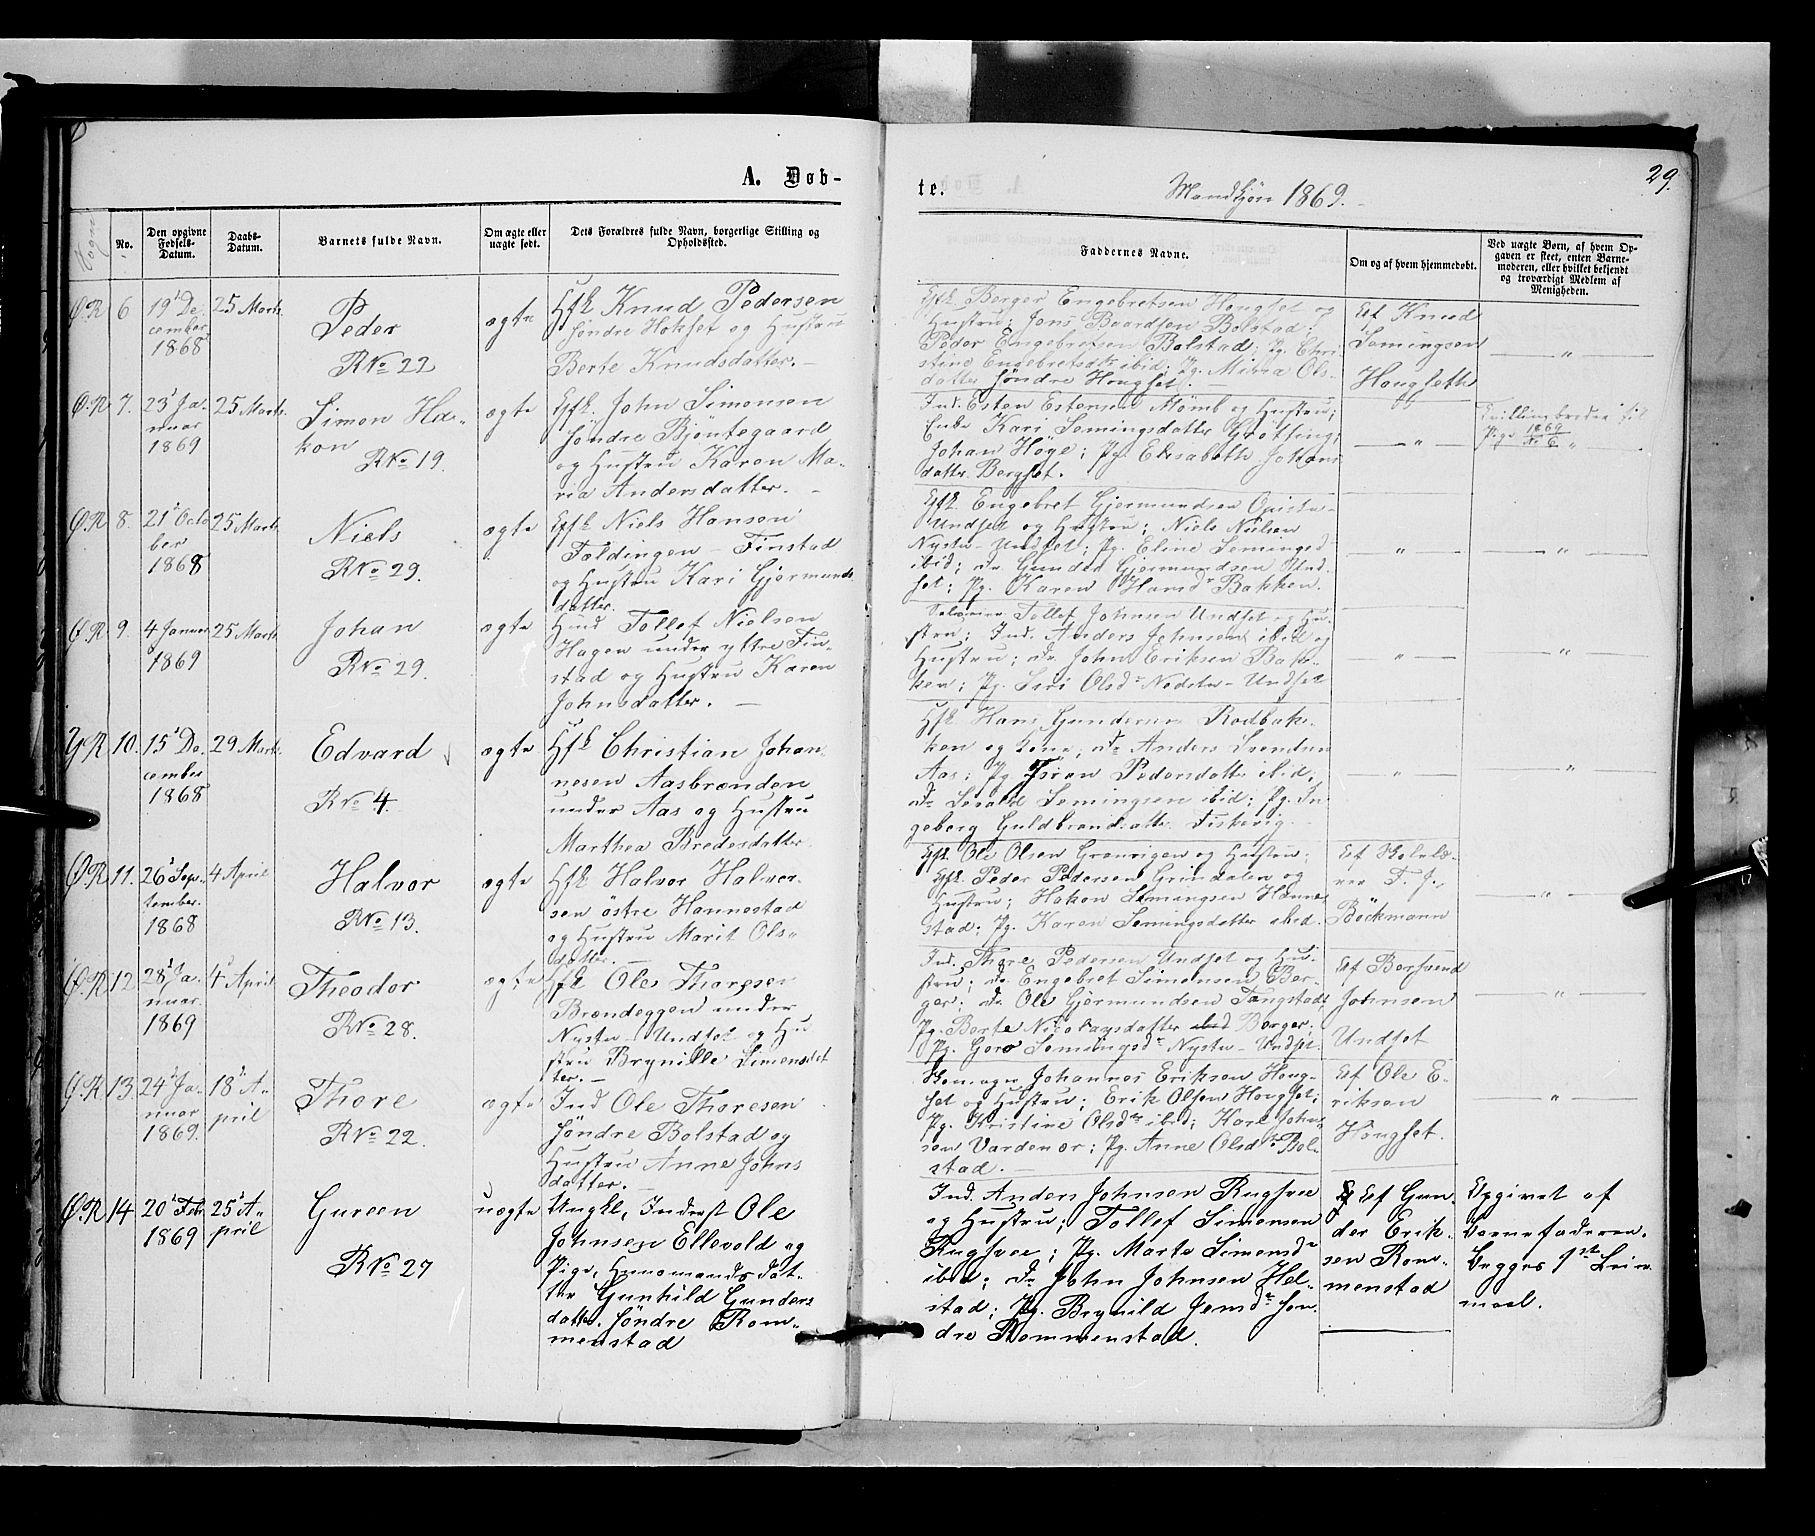 A. Døb-
te.
Mandkjøn 1869.
29.
Sogne
No.
Den opgivne
Fødsels-
Datum.
Daabs-
Datum.
Barnets fulde Navn.
Om ægte eller
uægte født.
Dets Forældres fulde Navn, borgerlige Stilling og
Opholdssted.
Faddernes Navne.
Om og af hvem hjemmedøbt.
Ved uægte Børn, af hvem Op-
gaven er skeet, enten Barne-
moderen, eller hvilket bekjendt
og troværdigt Medlem af
Menigheden.
Ø.R 6
19' De-
cember
1868
25 Marts
Peder
RNo 22
ægte
Gfk Knud Pedersen
søndre Hokset og Hustru
Berte Knudsdatter.
Gfk. Berger Engebretsen Hougset og
Hustru; Jens Baardsen Bolstad;
Peder Engebretsen Bolstad; Pg. Chri-
stine Engebretsdtr ibid; Pg. Ols-
datter søndre Hougset.
Af Knud
Semingsen
Hougseth
Ø.R 7.
23' Ja-
nuar
1869
25 Marts
Simon Ha-
kon
RNo 19.
ægte
Gfk. John Simonsen
søndre Bjøntegaard
og Hustru Karen Ma-
ria Andersdatter.
Ind. Esten Estensen Mømb og Hustru;
Enke Kari Semingsdatter Grøtting;
Johan Høye; Pg. Elisabeth Johans-
datter Bergset.
Tvillingbroder til
Pige 1869
No 6
Ø.R 8.
21' Octo-
ber
1868
25 Marts
Niels
RNo 29.
ægte
Gfk Niels Hansen
Toldingen - Finstad
og Hustru Kari Gjermunds-
datter.
Gfk. Engebret Gjermundsen
Undset og Hustru; Niels Nielsen
Nystu-Undset; Pg. Eline Semingsd
ibid; do Gunder Gjermundsen Und-
set; Pg. Karen Hansdr Bakken.
Ø.R 9.
4 Januar
1869
25 Marts
Johan
RNo 29.
ægte
Hmd Tollef Nielsen
Hagen under yttre Fin-
stad og Hustru Karen
Johnsdatter.
Tollef Johnsen Undset og Hu-
stru; Ind. Anders Johnsen ibid og
Hustru; do John Eriksen Bak-
ken; Pg. Siri Olsdr Nedstu-Undset
Y.R 10.
15' De-
cember
1868
29 Marts
Edvard
RNo 4.
ægte
Hfk Christian Johan-
nesen Aasbrænden
under Aas og Hustru
Marthea Bredesdatter
Hfk Hans Gundersen Rødbak-
ken og Kone; do Anders Svendsen
Aas; Pg Pedersdatter ibid;
do Semingsen ibid; Pg. In-
geborg Guldbrandsdatter Fiskevig.
Ø.R 11.
26' Sep-
tember.
1868
4 April
Halvor
RNo 13.
ægte
Hfk Halvor Halvor-
sen østre Hannestad
og Hustru Marit Ols-
datter.
Gfk. Ole Olsen og Hustru;
Gfk. Peder Pedersen Grindalen og
Hustru; Hakon Semingsen Hanne-
stad; Pg. Karen Semingsdatter ibid.
Af Skolelæ-
rer T. J.
Böckmann
Ø.R 12
28' Ja-
nuar.
1869
4' April
Theodor
RNo 28.
ægte
Hfk Ole Thoresen
Brændeggen under
Nystu-Undset og Hu-
stru Brynille Simensdat-
ter.
Ind. Thore Pedersen Undset og Hu-
stru; do Engebret Simensen Ber-
ger; do Ole Gjermundsen Tangstad;
Pg. Berte Nicolaysdatter ibid Berger;
Pg. Goro Semingsdr Nystu-Undset.
Af Borsvend
Johnsen
Undset
Ø.R 13.
24' Ja-
nuar
1869.
18' A-
pril
Thore
RNo 22.
ægte
Ind Ole Thoresen
søndre Bolstad og
Hustru Anne Johns-
datter.
Johannes Eriksen Houg-
set og Hustru; Erik Olsen Hougset;
Pg. Kristine Olsdtr ibid; Kare John-
sen Vardenær; Pg. Anne Olsdtr Bol-
stad.
Af Ole E-
riksen
Hougset.
Ø.R 14
20' Feb
1869
25' A-
pril
Gureen
RNo 27
uægte
Ungkl, Inderst Ole
Johnsen Ellevold og
Pige, Huusmands dat-
ter Gunhild Gunders-
datter søndre Rom-
menstad
Ind. Anders Johnsen Rugsvee
og Hustru; Tollef Simensen
Rugsvee; Pg. Marte Simensdr
ibid; do John Johnsen Hel-
stad; Pg. Brynild Jensdr søn-
dre Rommenstad.
Af Gun-
der Erik-
sen Rom-
menstad
Opgivet af
Barnefaderen.
Begges 1ste Leier-
maal.